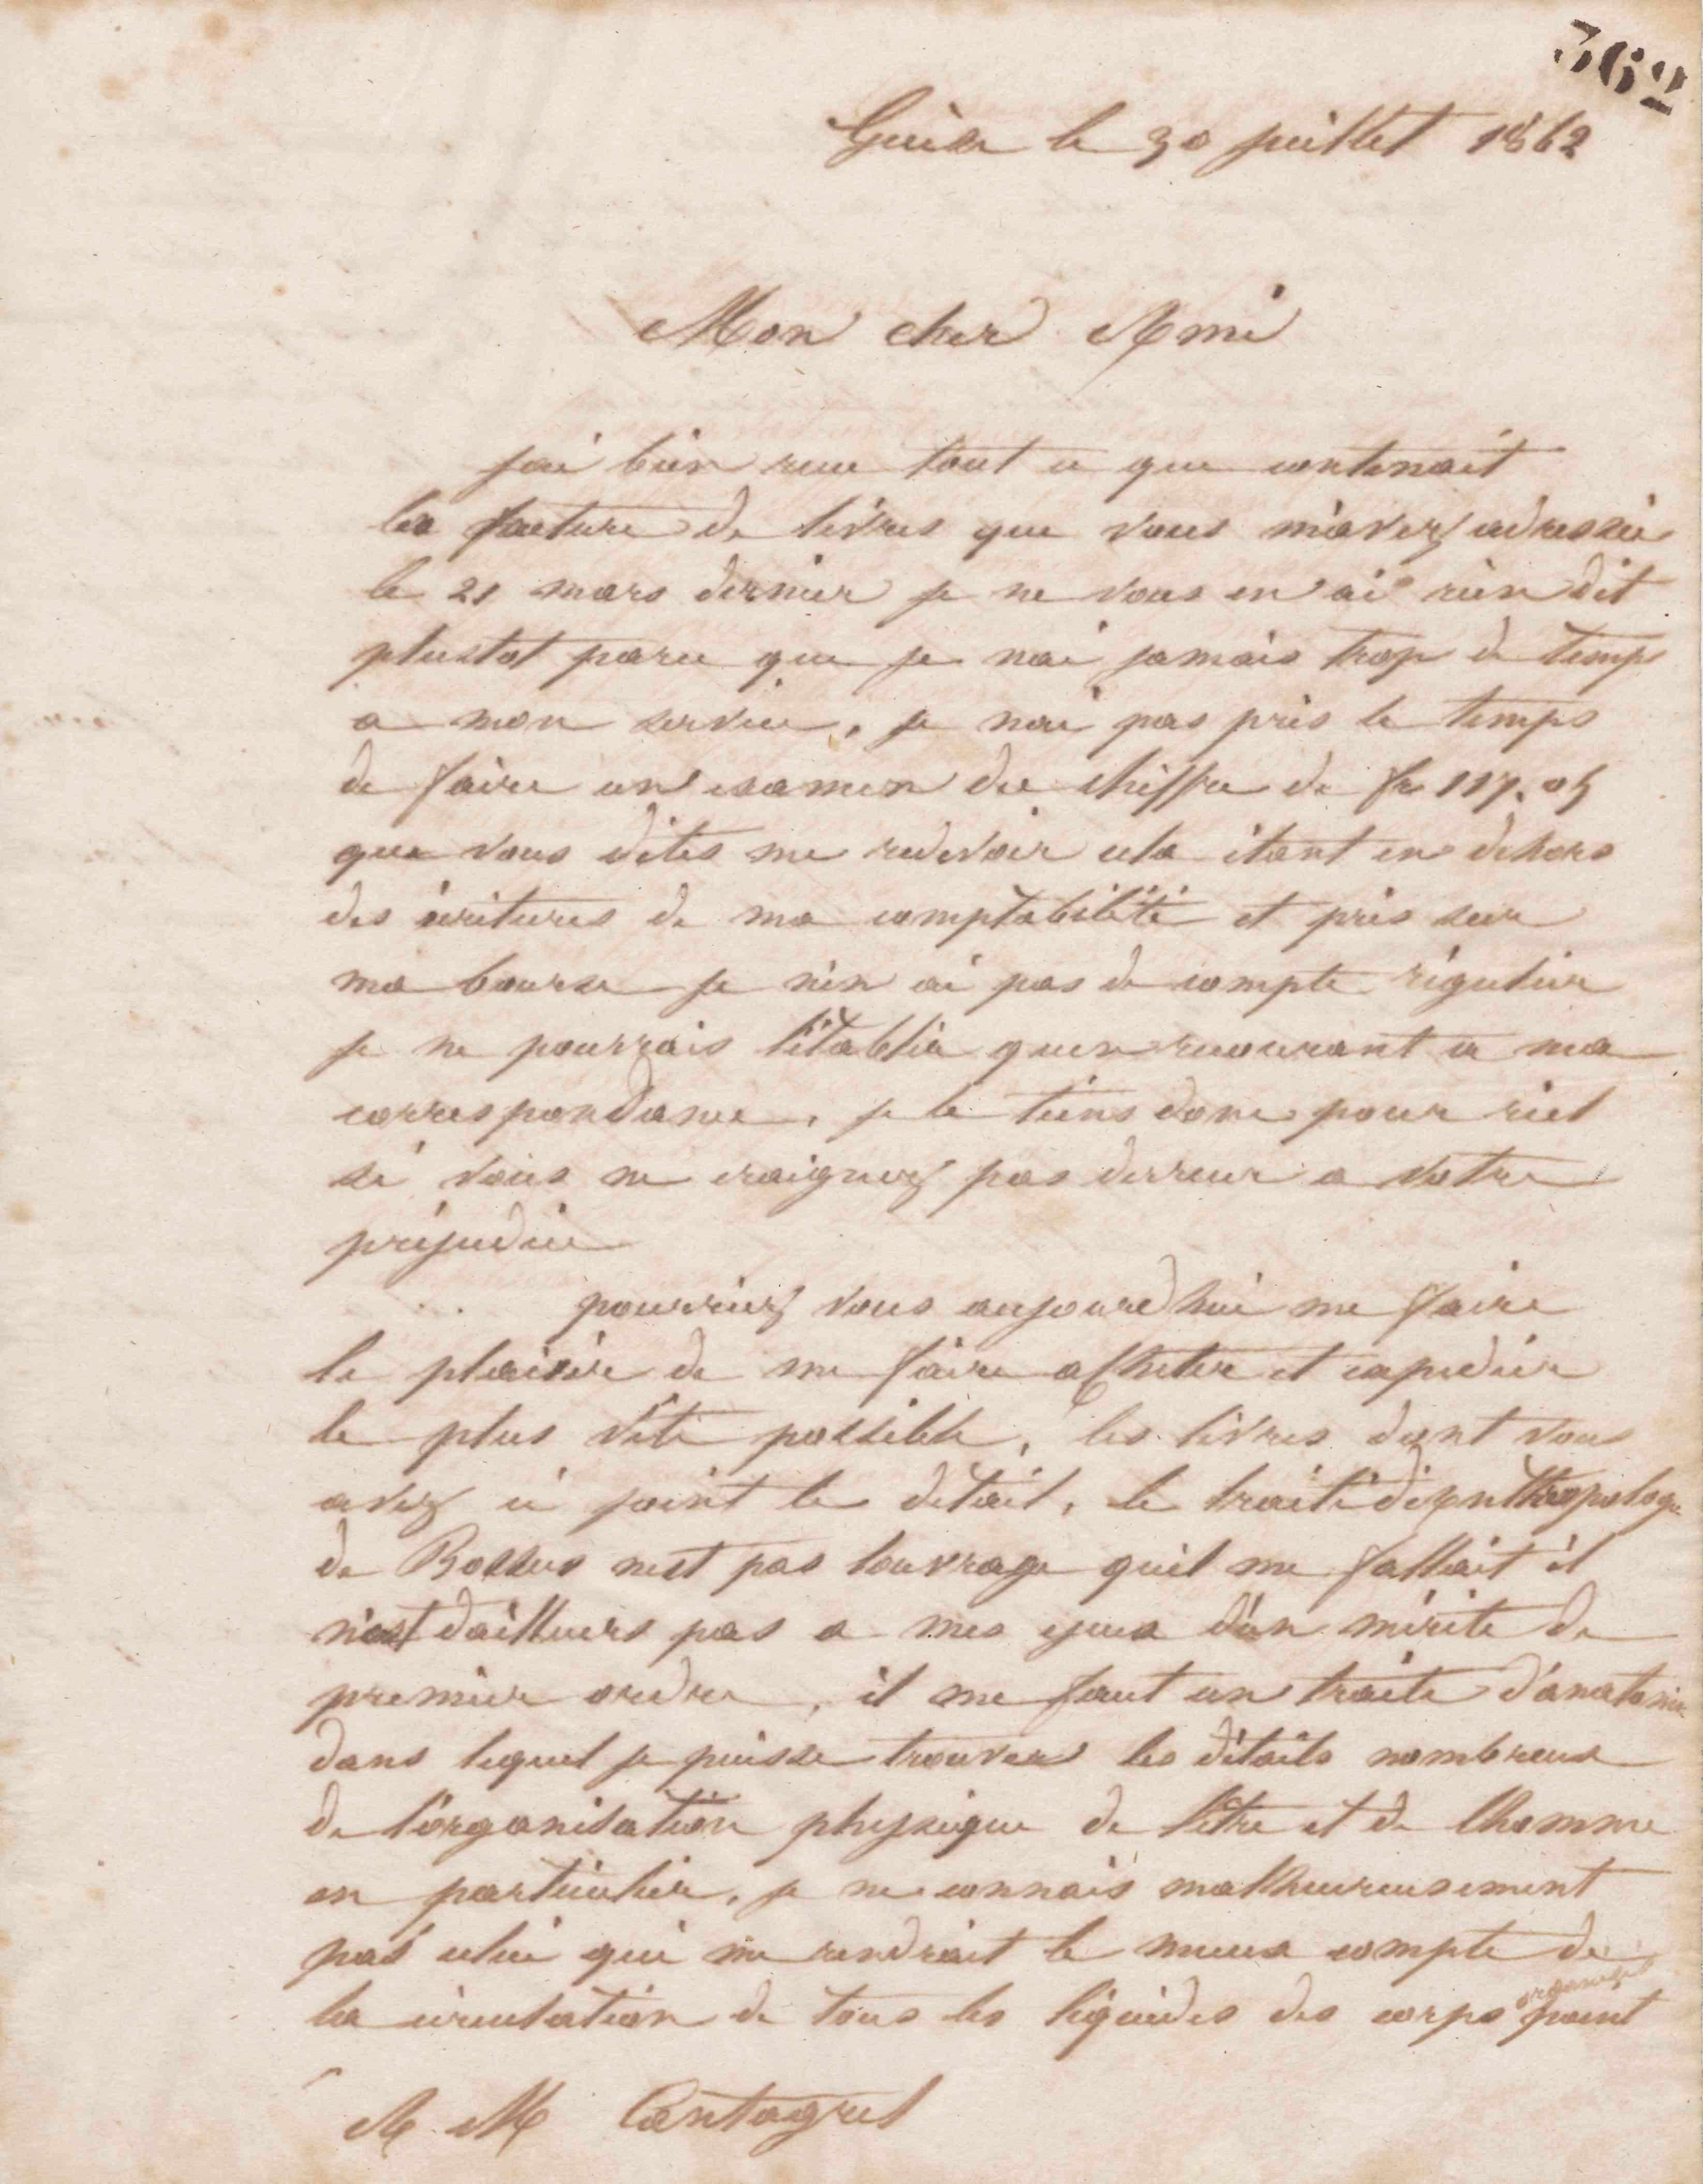 362
Guise le 30 juillet 1862
Mon cher Ami
j'ai bien recu tout ce que contenait
la facture de livres que vous m'avez adressée
le 21 mars dernier je ne vous en ai rien dit
plustot parce que je nai jamais trop de temps
a mon service, je nai pas pris le temps
de faire un examen du chiffre de fr 117.05
que vous dites me redevoir cela étant en dehors
des écritures de ma comptabilité et pris sur
ma bourse je n'en ai pas de compte régulier
je ne pourrais l'établir quen recourant a ma
correspondance, je le tiens donc pour réel
si vous ne craignez pas derreur a votre
préjudice
pourriez vous aujourdhui me faire
le plaisir de me faire acheter et expedier
le plus vite possible, les livres dont vous
avez ci joint le détail, le traité d'anthropologie
de Bossus nest pas louvrage quil me fallait il
n'est dailleurs pas a mes yeux d'un mérite de
premier ordre, il me faut un traité d'anatomie
dans lequel je puisse trouver les détails nombreux
de l'organisation physique de l'être et de lhomme
en particulier, je ne connais malheureusement
pas celui qui me rendrait le mieux compte de
la circulation de tous les liquides des corps organisés point
A M Cantagrel